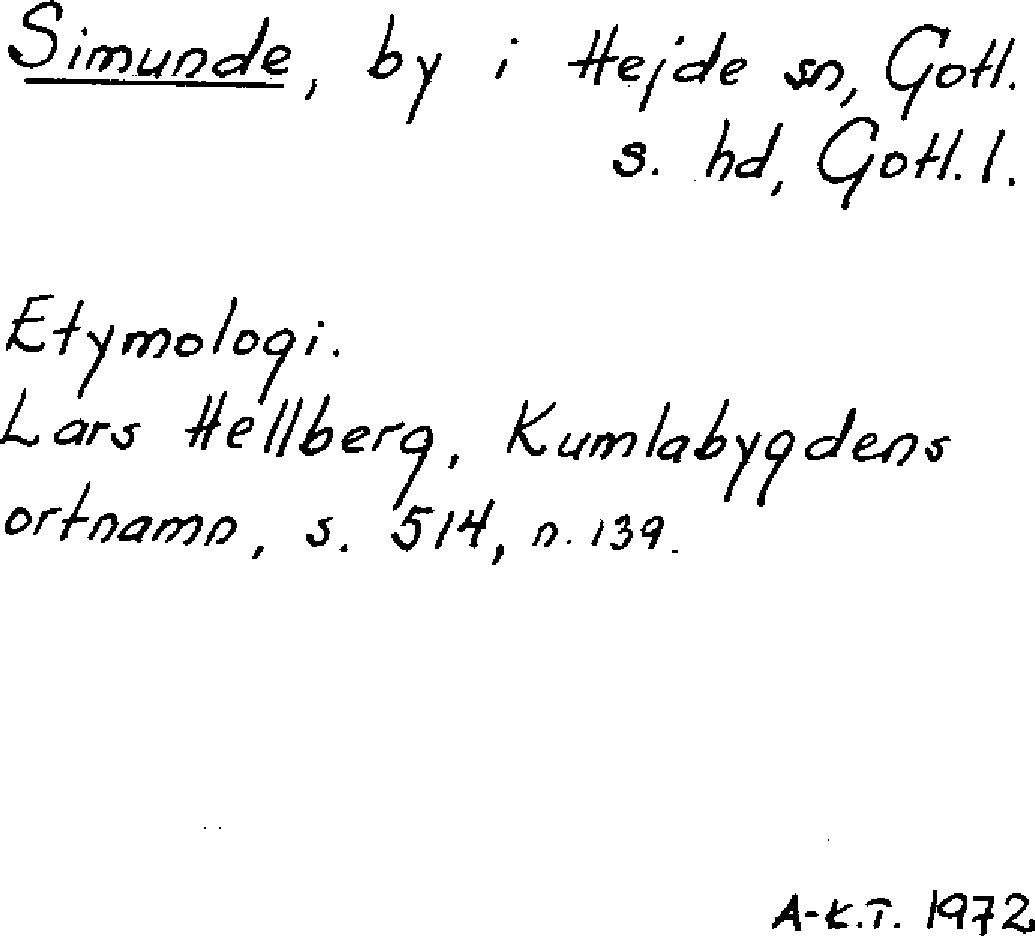 Simunde, by i Hejde sn, Gotl.
s. hd, Gotl. l.
Etymologi.
Lars Hellberg, Kumlabygdens
ortnamn, s. 514, n. 139.
A-K.T. 1972.